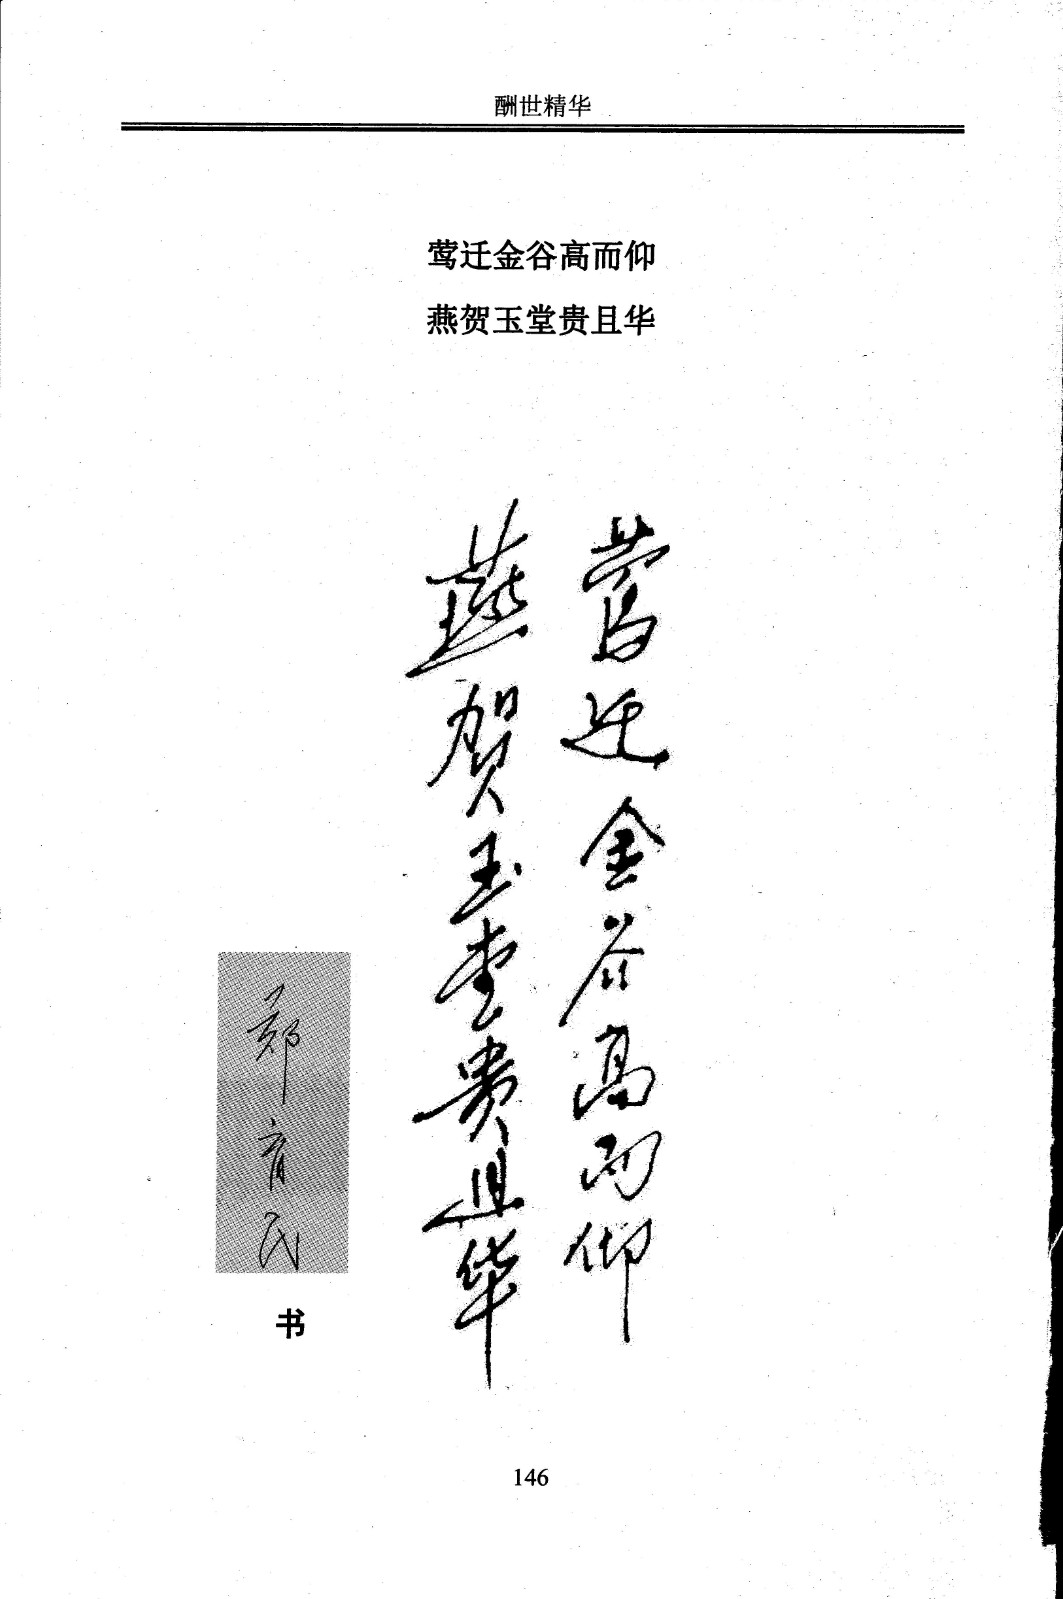 酬世精华
莺迁金谷高而仰
燕贺玉堂贵且华
莺迁金谷高而仰
燕贺玉堂贵且华
郑育民
书
146